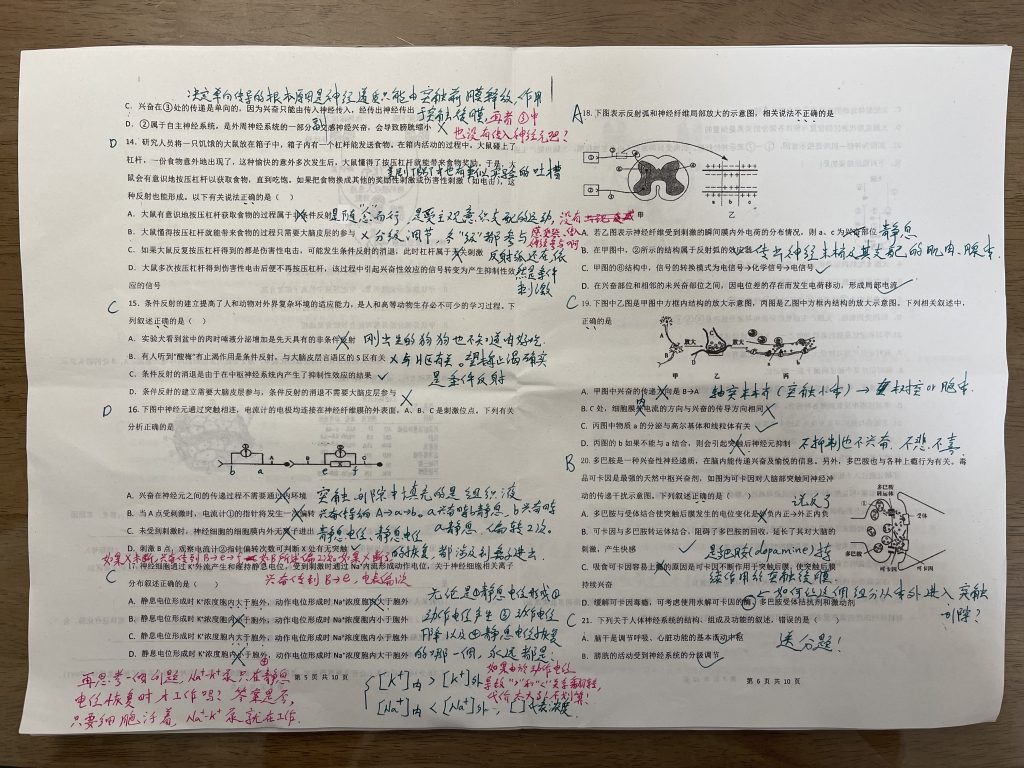 决定单向传导的根本原因是神经递质只能由突触前膜释放,作用
C. 兴奋在③处的传递是单向的,因为兴奋只能由传入神经传入,经传出神经传出
于突触后膜,再者③中
D. ②属于自主神经系统,是外周神经系统的一部分,交感神经兴奋,会导致膀胱缩小
副
也没有传入神经元吧?
D
14. 研究人员将一只饥饿的大鼠放在箱子中,箱子内有一个杠杆能发送食物,在箱内活动的过程中,大鼠碰上了
杠杆,一份食物意外地出现了,这种愉快的意外多次发生后,大鼠懂得了按压杠杆就能带来食物奖励,于是,大
鼠会有意识地按压杠杆以获取食物,直到吃饱。如果把食物换成其他的奖励性刺激或伤害性刺激(如电击),这
种反射也能形成。以下有关说法正确的是( )
A. 大鼠有意识地按压杠杆获取食物的过程属于非条件反射
是随“意”而行,是受主观意识支配的运动,没有
B. 大鼠懂得按压杠杆就能带来食物的过程只需要大脑皮层的参与
分级调节,各“级”都参与
C. 如果大鼠反复按压杠杆得到的都是伤害性电击,可能发生条件反射的消退,此时杠杆属于无关刺激
反射弧还在,依
然是条件
刺激
D. 大鼠多次按压杠杆得到伤害性电击后便不再按压杠杆,该过程中引起兴奋性效应的信号转变为产生抑制性效
应的信号
C
15. 条件反射的建立提高了人和动物对外界复杂环境的适应能力,是人和高等动物生存必不可少的学习过程,下
列叙述正确的是( )
A. 实验犬看到盆中的肉时唾液分泌增加是先天具有的非条件反射
刚出生的狗狗也不知道肉好吃
B. 有人听到“酸梅”有止渴作用是条件反射,与大脑皮层言语区的S区有关
与H区有关。望梅止渴确实
是条件反射
C. 条件反射的消退是由于在中枢神经系统内产生了抑制性效应的结果
D. 条件反射的建立需要大脑皮层参与,条件反射的消退不需要大脑皮层参与
D
16. 下图中神经元通过突触相连,电流计的电极均连接在神经纤维膜的外表面,A、B、C是刺激位点,下列有关
分析正确的是
b a e f
A. 兴奋在神经元之间的传递过程不需要通过内环境
突触间隙中填充的是组织液
B. 当A点受刺激时,电流计①的指针将发生一次偏转
兴奋传到A→a→b。a兴奋时b静息,b兴奋时
a静息,偏转2次。
C. 未受刺激时,神经细胞的细胞膜内外无离子进出
静息电位、静息电位
的恢复,都涉及到离子进出。
D. 刺激B点,观察电流计②指针偏转次数可判断X处有无突触
兴奋传到B→e,电表偏1次
17. 神经细胞通过K⁺外流产生和维持静息电位,受到刺激时通过Na⁺内流形成动作电位,关于神经细胞相关离子
分布叙述正确的是( )
C
A. 静息电位形成时K⁺浓度胞内大于胞外,动作电位形成时Na⁺浓度胞内大于胞外
B. 静息电位形成时K⁺浓度胞内小于胞外,动作电位形成时Na⁺浓度胞内小于胞外
C. 静息电位形成时K⁺浓度胞内大于胞外,动作电位形成时Na⁺浓度胞内小于胞外
D. 静息电位形成时K⁺浓度胞内小于胞外,动作电位形成时Na⁺浓度胞内大于胞外
无论是①静息电位形成②
动作电位产生③动作电位
下降以及④静息电位恢复
的哪一个,永远都是:
[K⁺]内 > [K⁺]外
[Na⁺]内 < [Na⁺]外,[ ]代表浓度
再思考一个问题,Na⁺-K⁺泵只在静息
电位恢复时才工作吗?答案是否,
只要细胞活着,Na⁺-K⁺泵就在工作.
如果由于动作电位
导致“>”和“<”关系翻转,
代价太大,不划算!
第 5 页 共 10 页
A
18. 下图表示反射弧和神经纤维局部放大的示意图,相关说法不正确的是
甲 乙
A. 若乙图表示神经纤维受到刺激的瞬间膜内外电荷的分布情况,则a、c为兴奋部位
静息
B. 在甲图中,②所示的结构属于反射弧的效应器
传出神经末梢及其支配的肌肉、腺体.
C. 甲图的⑥结构中,信号的转换模式为电信号→化学信号→电信号
D. 在兴奋部位和相邻的未兴奋部位之间,因电位差的存在而发生电荷移动,形成局部电流
C
19. 下图中乙图是甲图中方框内结构的放大示意图,丙图是乙图中方框内结构的放大示意图。下列相关叙述中,
正确的是
放大 放大
甲 乙 丙
A. 甲图中兴奋的传递方向是B→A
轴突末梢(突触小体)→树突or胞体.
B. C处,细胞膜外电流的方向与兴奋的传导方向相同
内
C. 丙图中物质a的分泌与高尔基体和线粒体有关
D. 丙图的b如果不能与a结合,则会引起突触后神经元抑制
不抑制也不兴奋.不悲.不喜.
B
20. 多巴胺是一种兴奋性神经递质,在脑内能传递兴奋及愉悦的信息。另外,多巴胺也与各种上瘾行为有关。毒
品可卡因是最强的天然中枢兴奋剂,如图为可卡因对人脑部突触间神经冲
动的传递干扰示意图。下列叙述正确的是( )
说反了
A. 多巴胺与受体结合使突触后膜发生的电位变化是外负内正→外正内负
B. 可卡因与多巴胺转运体结合,阻碍了多巴胺的回收,延长了其对大脑的
刺激,产生快感
是把胺(dopamine)持
续作用于突触后膜.
C. 吸食可卡因容易上瘾的原因是可卡因不断作用于突触后膜,使突触后膜
持续兴奋
D. 缓解可卡因毒瘾,可考虑使用水解可卡因的酶、多巴胺受体拮抗剂和激动剂
如何让这个组分从体外进入突触
间隙?
多巴胺
转运体
受体
多巴胺
可卡因
可卡因
C
21. 下列关于人体神经系统的结构、组成及功能的叙述,错误的是( )
送分题!
A. 脑干是调节呼吸、心脏功能的基本活动中枢
B. 膀胱的活动受到神经系统的分级调节
第 6 页 共 10 页